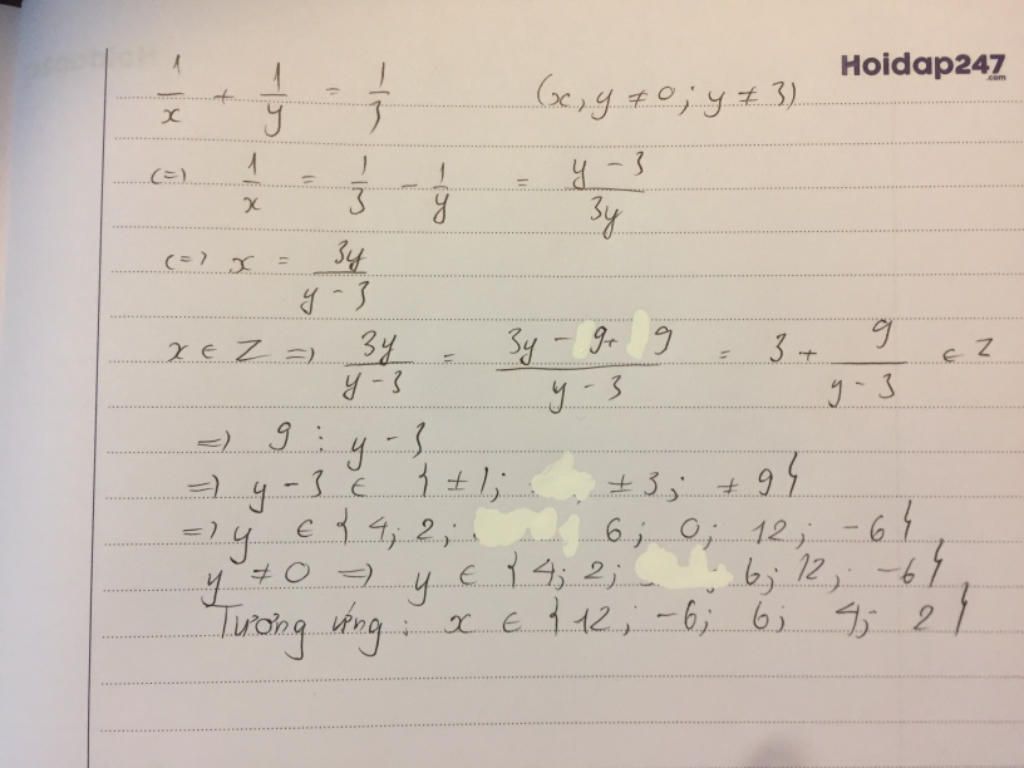 Hoidap247
.com
1/x + 1/y = 1/3 (x, y ≠ 0; y ≠ 3)
(=) 1/x = 1/3 - 1/y = (y - 3)/(3y)
(=) x = 3y/(y - 3)
x ∈ Z =) 3y/(y - 3) = (3y - 9 + 9)/(y - 3) = 3 + 9/(y - 3) ∈ Z
=) 9 ⋮ y - 3
=) y - 3 ∈ {±1; ±3; ±9}
=) y ∈ {4; 2; 6; 0; 12; -6}
y ≠ 0 =) y ∈ {4; 2; 6; 12; -6}
Tương ứng: x ∈ {12; -6; 6; 4; 2}